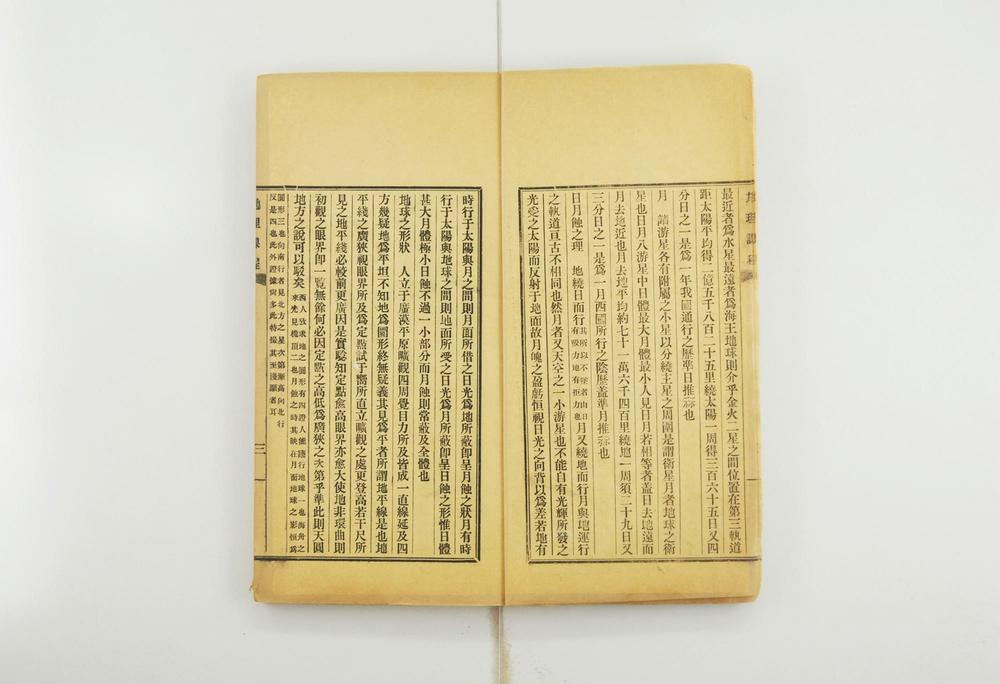 地理課程
最近者爲水星最遠者爲海王地球則介乎金火二星之間位置在第三軌道
距太陽平均得二億五千八百二十五里繞太陽一周得三百六十五日又四
分日之一是爲一年我國通行之歷準日推蒜也
月　諸游星各有附屬之小星以分繞主星之周圍是謂衛星月者地球之衛
星也日月八游星中日體最大月體最小人見日月若相等者蓋日去地遠而
月去地近也月去地平均約七十一萬六千四百里繞地一周須二十九日又
三分日之一是爲一月西國所行之陰歷蓋準月推蒜也
日月蝕之理　地繞日而行其所以不墜者由日有吸力地有拒力也月又繞地而行月與地運行
之軌道亘古不相同也然月者又天空之一小游星也不能自有光輝所發之
光受之太陽而反射于地面故月魄之盈虧恒視日光之向背以爲差若地有
時行于太陽與月之間則月面所借之日光爲地所蔽卽呈月蝕之狀月有時
行于太陽與地球之間則地面所受之日光爲月所蔽卽呈日蝕之形惟日體
甚大月體極小日蝕不過一小部分而月蝕則常蔽及全體也
地球之形狀　人立于廣漠平原曠觀四周覺目力所及皆成一直線延及四
方幾疑地爲平坦不知地爲圓形終無疑義其見爲平者所謂地平線是也地
平綫之廣狹視眼界所及爲定點試于嚮所直立曠觀之處更登高若干尺所
見之地平綫必較前更廣因是實騐知定點愈高眼界亦愈大使地非環曲則
初觀之眼界卽一覽無餘何必因定點之高低爲廣狹之次第乎準此則天圓
地方之說可以駁矣西人攷求地之圓形有四證人能繞行地球一也海舟之
來先見桅頂二也月蝕之時其映在月面地球之影恒爲
圓形三也向南行者見北方之星次第漸高向北行
反是四也此外證據尙多此特撮其至淺顯者耳
地理課程
三